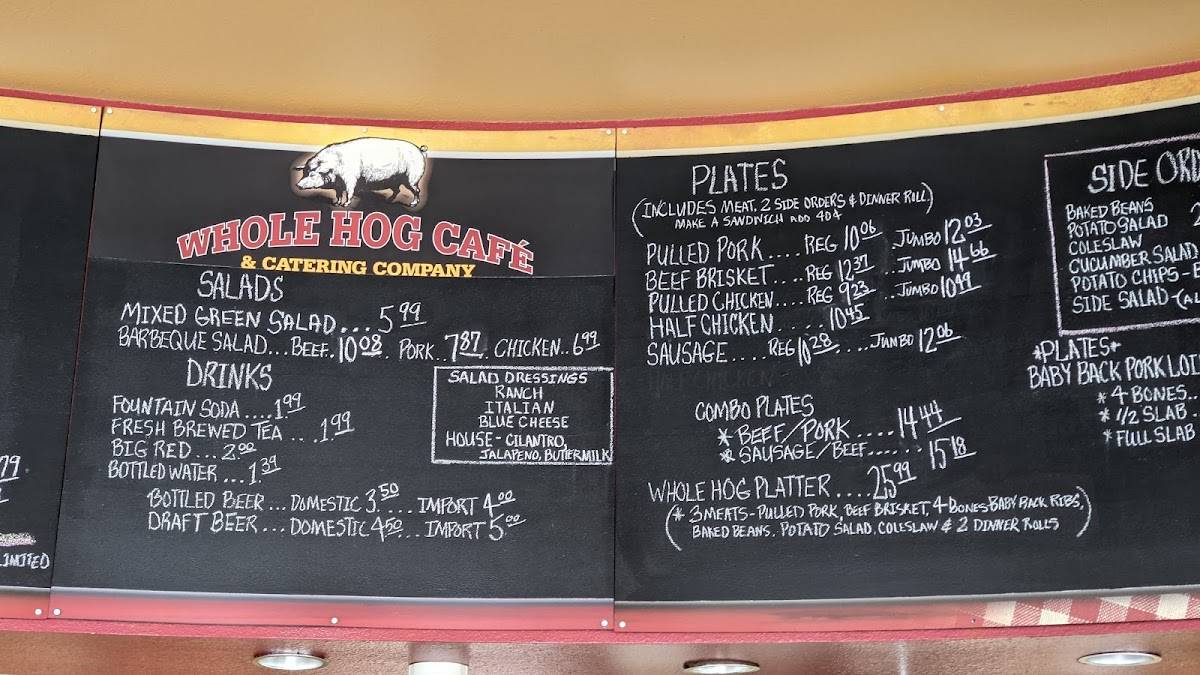 79
LIMITED
WHOLE HOG CAFÉ
& CATERING COMPANY
SALADS
MIXED GREEN SALAD...5.99
BARBEQUE SALAD...BEEF.10.08. PORK..7.87. CHICKEN..6.99
DRINKS
FOUNTAIN SODA....1.99
FRESH BREWED TEA ...1.99
BIG RED...2.00
BOTTLED WATER ...1.39
BOTTLED BEER...DOMESTIC 3.50 ... IMPORT 4.00
DRAFT BEER...DOMESTIC 4.50... IMPORT 5.00
SALAD DRESSINGS
RANCH
ITALIAN
BLUE CHEESE
HOUSE - CILANTRO,
JALAPENO, BUTTERMILK
PLATES
(INCLUDES MEAT, 2 SIDE ORDERS & DINNER ROLL)
MAKE A SANDWICH ADD 40¢
PULLED PORK.... REG 10.06 .. JUMBO 12.03
BEEF BRISKET....REG 12.37 ...JUMBO 14.66
PULLED CHICKEN....REG 9.23 ..JUMBO 10.49
HALF CHICKEN.....10.45
SAUSAGE.... REG 10.28.....JUMBO 12.06
COMBO PLATES
* BEEF/PORK.....14.44
* SAUSAGE/BEEF......15.18
WHOLE HOG PLATTER....25.99
(* 3 MEATS - PULLED PORK, BEEF BRISKET, 4-BONES BABY BACK RIBS,
BAKED BEANS, POTATO SALAD, COLESLAW & 2 DINNER ROLLS)
SIDE ORD
BAKED BEANS
POTATO SALAD
COLESLAW
CUCUMBER SALAD
POTATO CHIPS -
SIDE SALAD - (AL
*PLATES*
BABY BACK PORK LOI
* 4 BONES..
* 1/2 SLAB.
* FULL SLAB